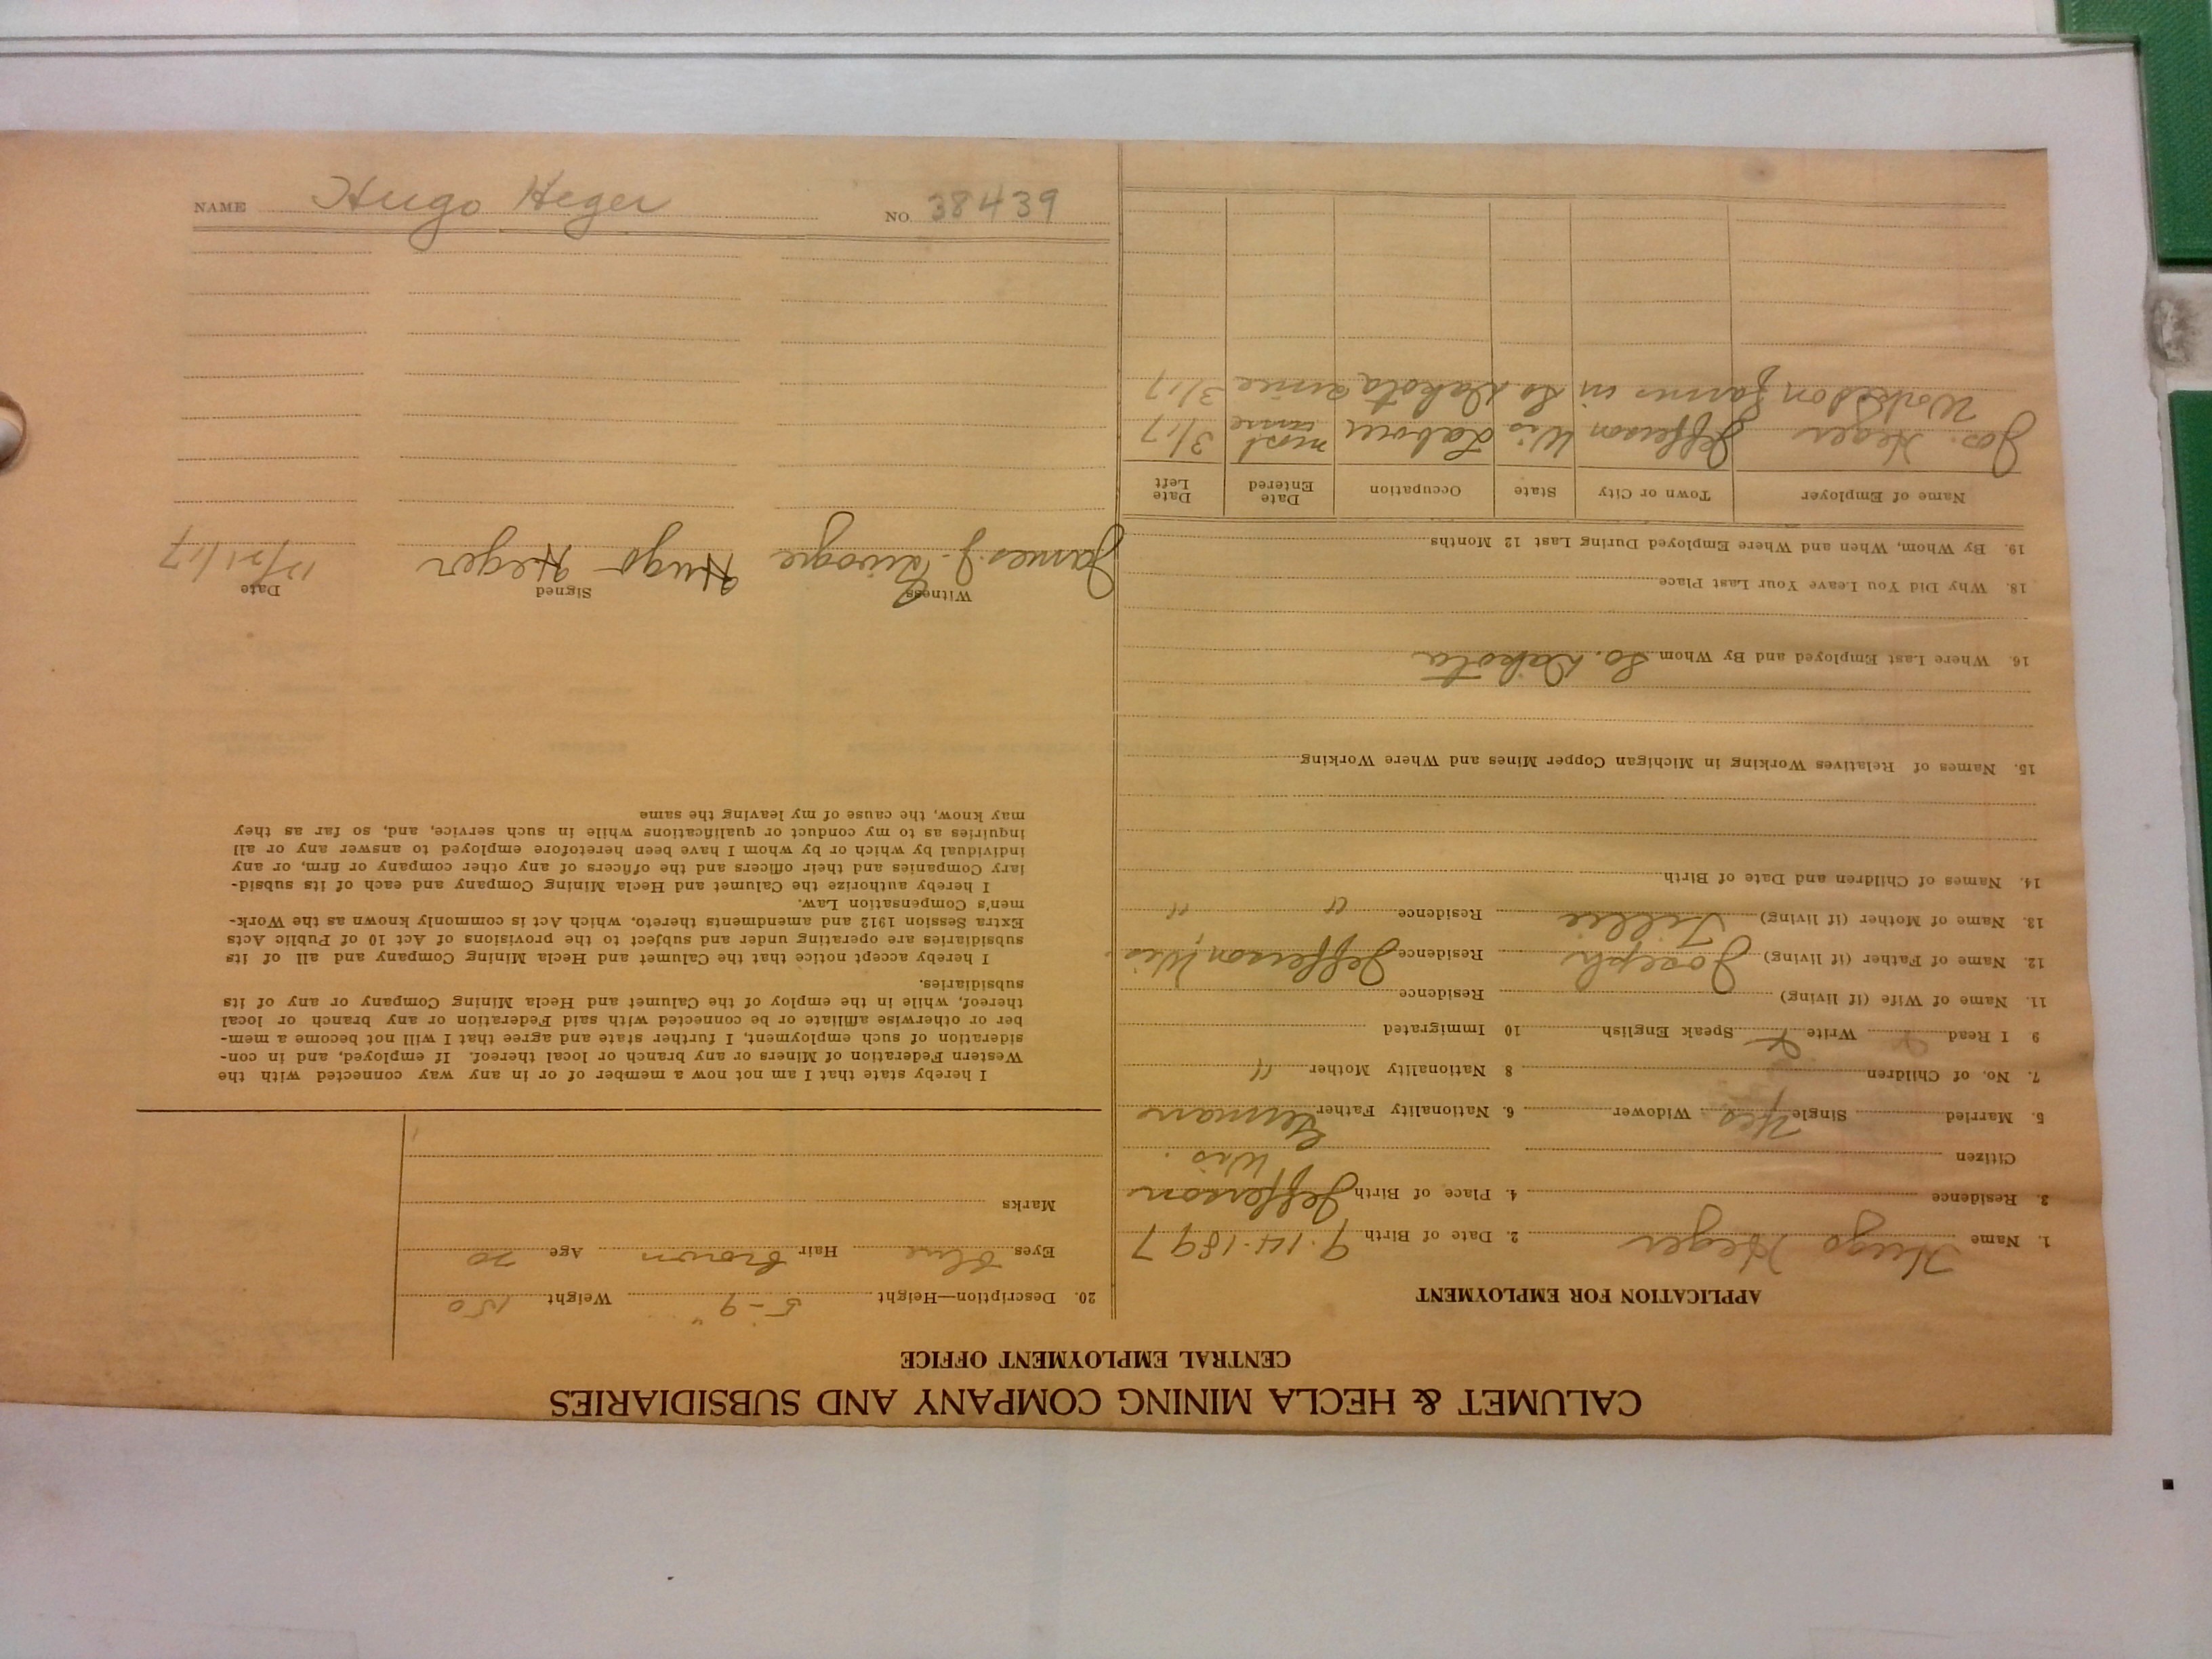 CALUMET & HECLA MINING COMPANY AND SUBSIDIARIES
CENTRAL EMPLOYMENT OFFICE
APPLICATION FOR EMPLOYMENT
1. Name Hugo Heger 2. Date of Birth 9-14-1897
3. Residence 4. Place of Birth Jefferson
Wis.
Citizen
5. Married Single Yes Widower 6. Nationality Father German
7. No. of Children 8 Nationality Mother "
9 I Read Write Speak English 10 Immigrated
11. Name of Wife (if living) Residence
12. Name of Father (if living) Joseph Residence Jefferson, Wis.
13. Name of Mother (if living) Tillie Residence " "
14. Names of Children and Date of Birth
15. Names of Relatives Working in Michigan Copper Mines and Where Working
16. Where Last Employed and By Whom So. Dakota
18. Why Did You Leave Your Last Place
19. By Whom, When and Where Employed During Last 12 Months
Name of Employer Town or City State Occupation Date Entered Date Left
Jos. Heger Jefferson Wis Laborer most 3/17
Worked on farms in So Dakota since 3/17
20. Description—Height 5-9" Weight 150
Eyes blue Hair brown Age 20
Marks
I hereby state that I am not now a member of or in any way connected with the
Western Federation of Miners or any branch or local thereof. If employed, and in con-
sideration of such employment, I further state and agree that I will not become a mem-
ber or otherwise affiliate or be connected with said Federation or any branch or local
thereof, while in the employ of the Calumet and Hecla Mining Company or any of its
subsidiaries.
I hereby accept notice that the Calumet and Hecla Mining Company and all of its
subsidiaries are operating under and subject to the provisions of Act 10 of Public Acts
Extra Session 1912 and amendments thereto, which Act is commonly known as the Work-
men's Compensation Law.
I hereby authorize the Calumet and Hecla Mining Company and each of its subsid-
iary Companies and their officers and the officers of any other company or firm, or any
individual by which or by whom I have been heretofore employed to answer any or all
inquiries as to my conduct or qualifications while in such service, and, so far as they
may know, the cause of my leaving the same
Witness Signed Date
James J. Hugo Heger 12/21/17
NAME Hugo Heger NO. 38439